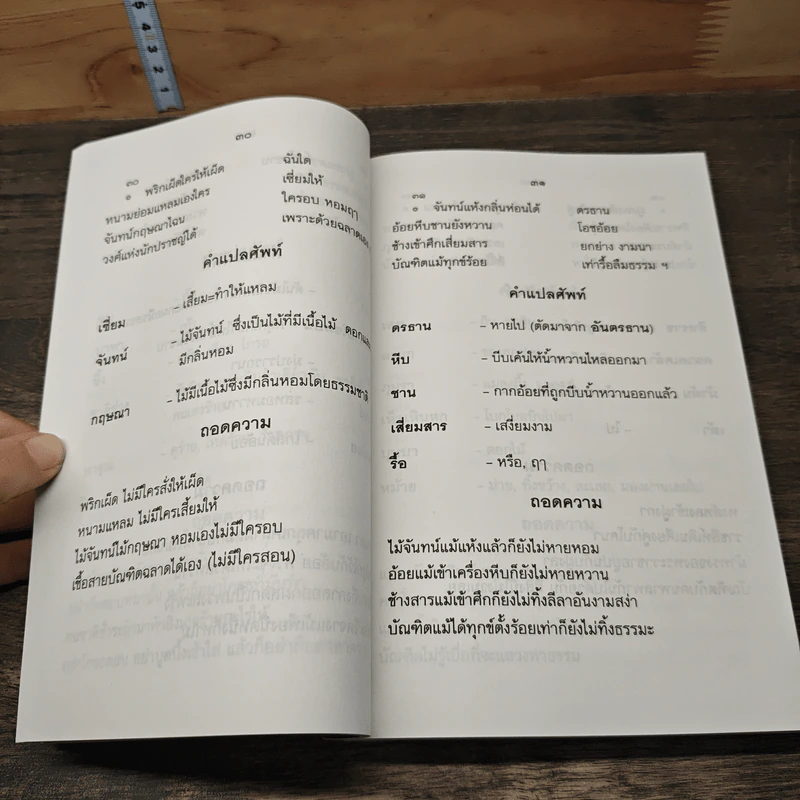 ๓๐
๓๐
๏ พริกเผ็ดใครให้เผ็ด ฉันใด
หนามย่อมแหลมเองใคร เซี่ยมให้
จันทน์กฤษณาไฉน ใครอบ หอมฤๅ
วงศ์แห่งนักปราชญ์ได้ เพราะด้วยฉลาดเอง
คำแปลศัพท์
เซี่ยม – เสี้ยม=ทำให้แหลม
จันทน์ – ไม้จันทน์ ซึ่งเป็นไม้ที่มีเนื้อไม้ ดอกและ
มีกลิ่นหอม
กฤษณา – ไม้มีเนื้อไม้ซึ่งมีกลิ่นหอมโดยธรรมชาติ
ถอดความ
พริกเผ็ด ไม่มีใครสั่งให้เผ็ด
หนามแหลม ไม่มีใครเสี้ยมให้
ไม้จันทน์ไม้กฤษณา หอมเองไม่มีใครอบ
เชื้อสายบัณฑิตฉลาดได้เอง (ไม่มีใครสอน)
๓๑
๓๑
๏ จันทน์แห้งกลิ่นห่อนได้ ดรธาน
อ้อยหีบชานยังหวาน โอชอ้อย
ช้างเข้าศึกเสี่ยมสาร ยกย่าง งามนา
บัณฑิตแม้ทุกข์ร้อย เท่ารื้อลืมธรรม ฯ
คำแปลศัพท์
ดรธาน – หายไป (ตัดมาจาก อันตรธาน)
หีบ – บีบเค้นให้น้ำหวานไหลออกมา
ชาน – กากอ้อยที่ถูกบีบน้ำหวานออกแล้ว
เสี่ยมสาร – เสงี่ยมงาม
รื้อ – หรือ, ฤๅ
ถอดความ
ไม้จันทน์แม้แห้งแล้วก็ยังไม่หายหอม
อ้อยแม้เข้าเครื่องหีบก็ยังไม่หายหวาน
ช้างสารแม้เข้าศึกก็ยังไม่ทิ้งลีลาอันงามสง่า
บัณฑิตแม้ได้ทุกข์ตั้งร้อยเท่าก็ยังไม่ทิ้งธรรมะ
5 4 3 2 1